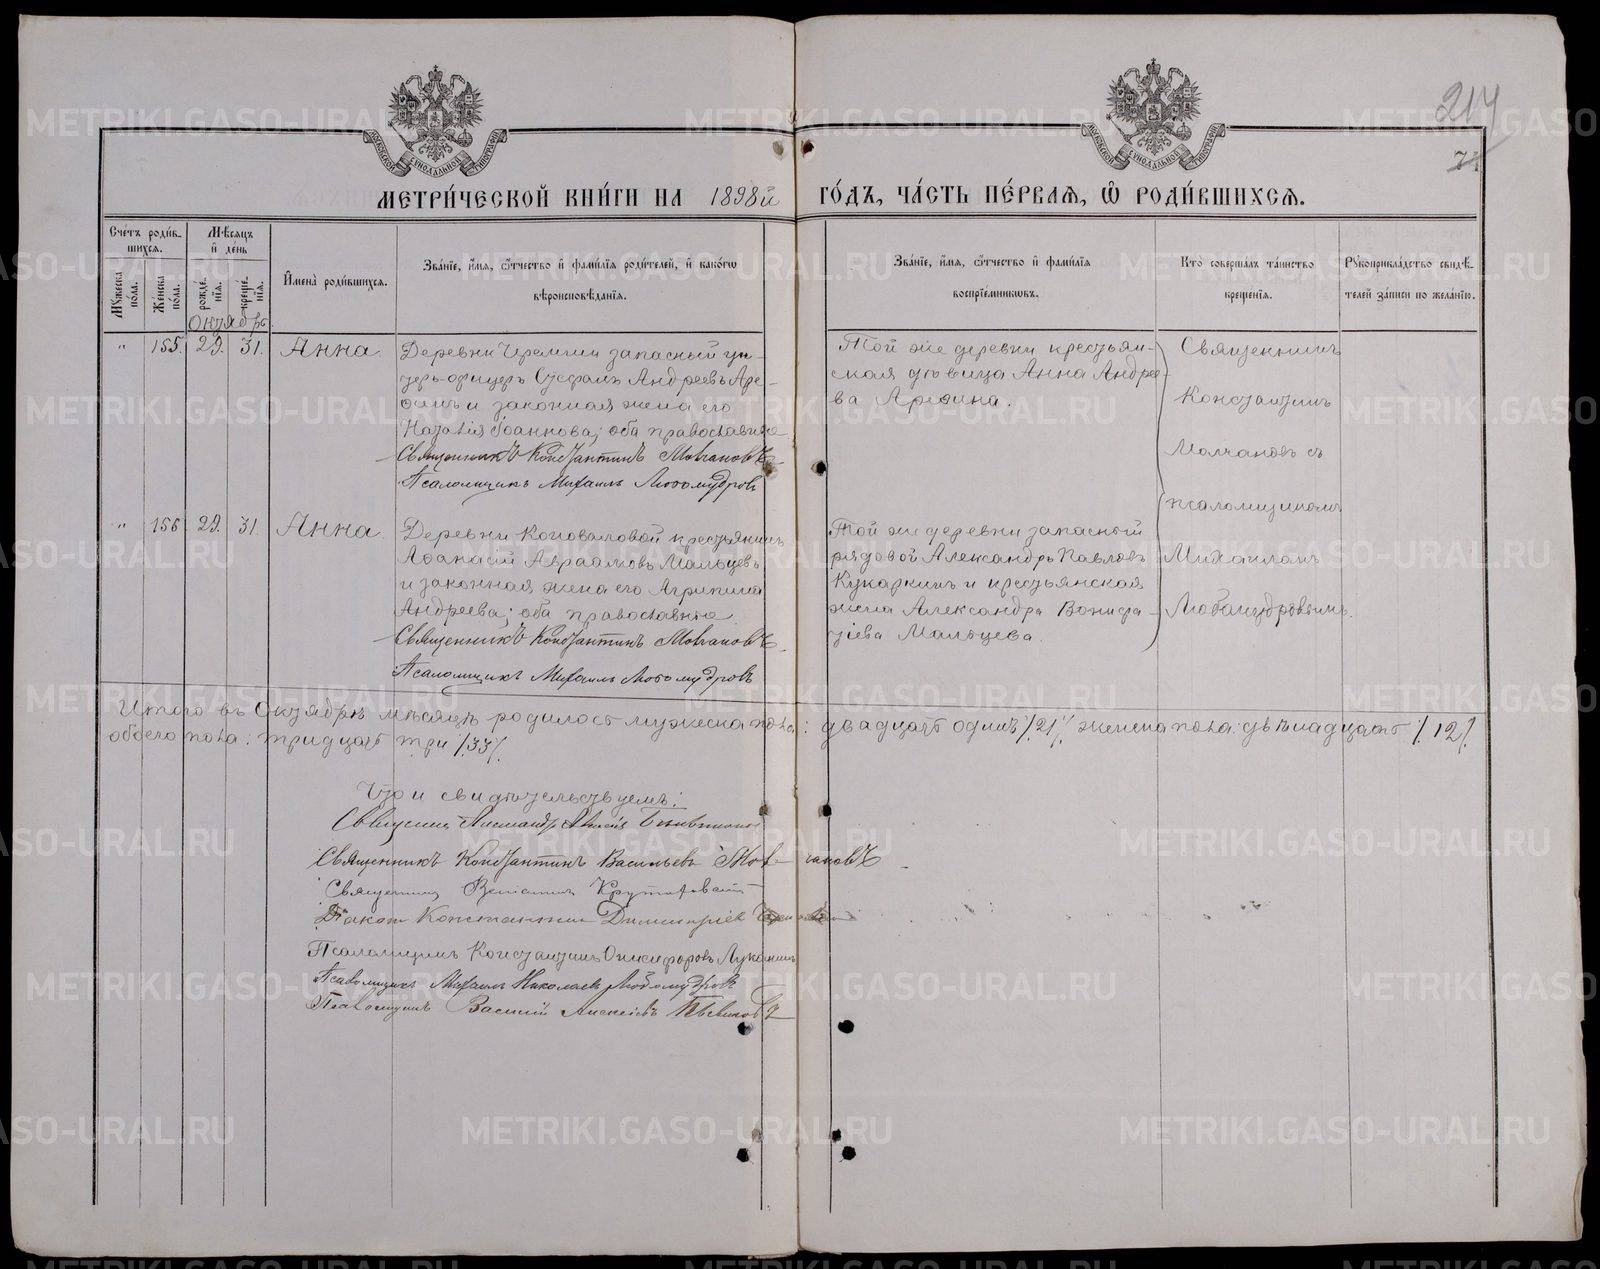 217
МЕТРИ́ЧЕСКОЙ КНИ́ГИ НА 1898й ГО́ДЪ, ЧА́СТЬ ПЕ́РВАЯ, Ѡ РОДИ́ВШИХСЯ.
Сче́тъ роди́вшихся.
Мꙋ́жеска по́ла.
Же́нска по́ла.
Мѣ́сяцъ и҆ де́нь
рожде́нїя.
креще́нїя.
Октябрь
И҆мена̀ роди́вшихся.
Зва́нїе, и҆́мя, ѻ҆́тчество и҆ фами́лїя роди́телей, и҆ како́гѡ
вѣроисповѣ́данїя.
Зва́нїе, и҆́мя, ѻ҆́тчество и҆ фами́лїя
воспрїе́мникѡвъ.
Кто̀ соверша́лъ та́инство
креще́нїя.
Рꙋкоприкла́дство свидѣ́-
телей за́писи по жела́нїю.
" 155. 29. 31. Анна.
Деревни Черемши запасный ун-
теръ-офицеръ Андреевъ Аре-
и законная жена его
Наталія Іоаннова; оба православные
Священникъ Константинъ Молчановъ
Псаломщикъ Михаилъ Любомудровъ
Той же деревни крестьян-
ская дѣвица Анна Андрее-
ва
Священникъ
Константинъ
Молчановъ съ
псаломщикомъ
Михаиломъ
Любомудровымъ.
" 156 29. 31. Анна
Деревни Коноваловой крестьянинъ
Аѳанасій Авраамовъ Мальцевъ
и законная жена его Агрипина
Андреева; оба православные.
Священникъ Константинъ Молчановъ
Псаломщикъ Михаилъ Любомудровъ
Той же деревни запасный
рядовой Александръ Павловъ
Кукаркинъ и крестьянская
жена Александра Вонифа-
тіева Мальцева.
Итого въ Октябрѣ мѣсяцѣ родилось мужеска пола: двадцать одинъ /21/, женска пола: двѣнадцать /12/.
обоего пола: тридцать три /33/.
Что и свидѣтельствуемъ:
Священникъ
Священникъ Константинъ Васильевъ Молчановъ
Священникъ
Діаконъ Константинъ Димитріевъ
Псаломщикъ Константинъ Онисифоровъ Луканинъ
Псаломщикъ Михаилъ Николаевъ Любомудровъ
Псаломщикъ Василій Алексѣевъ
METRIKI.GASO-URAL.RU